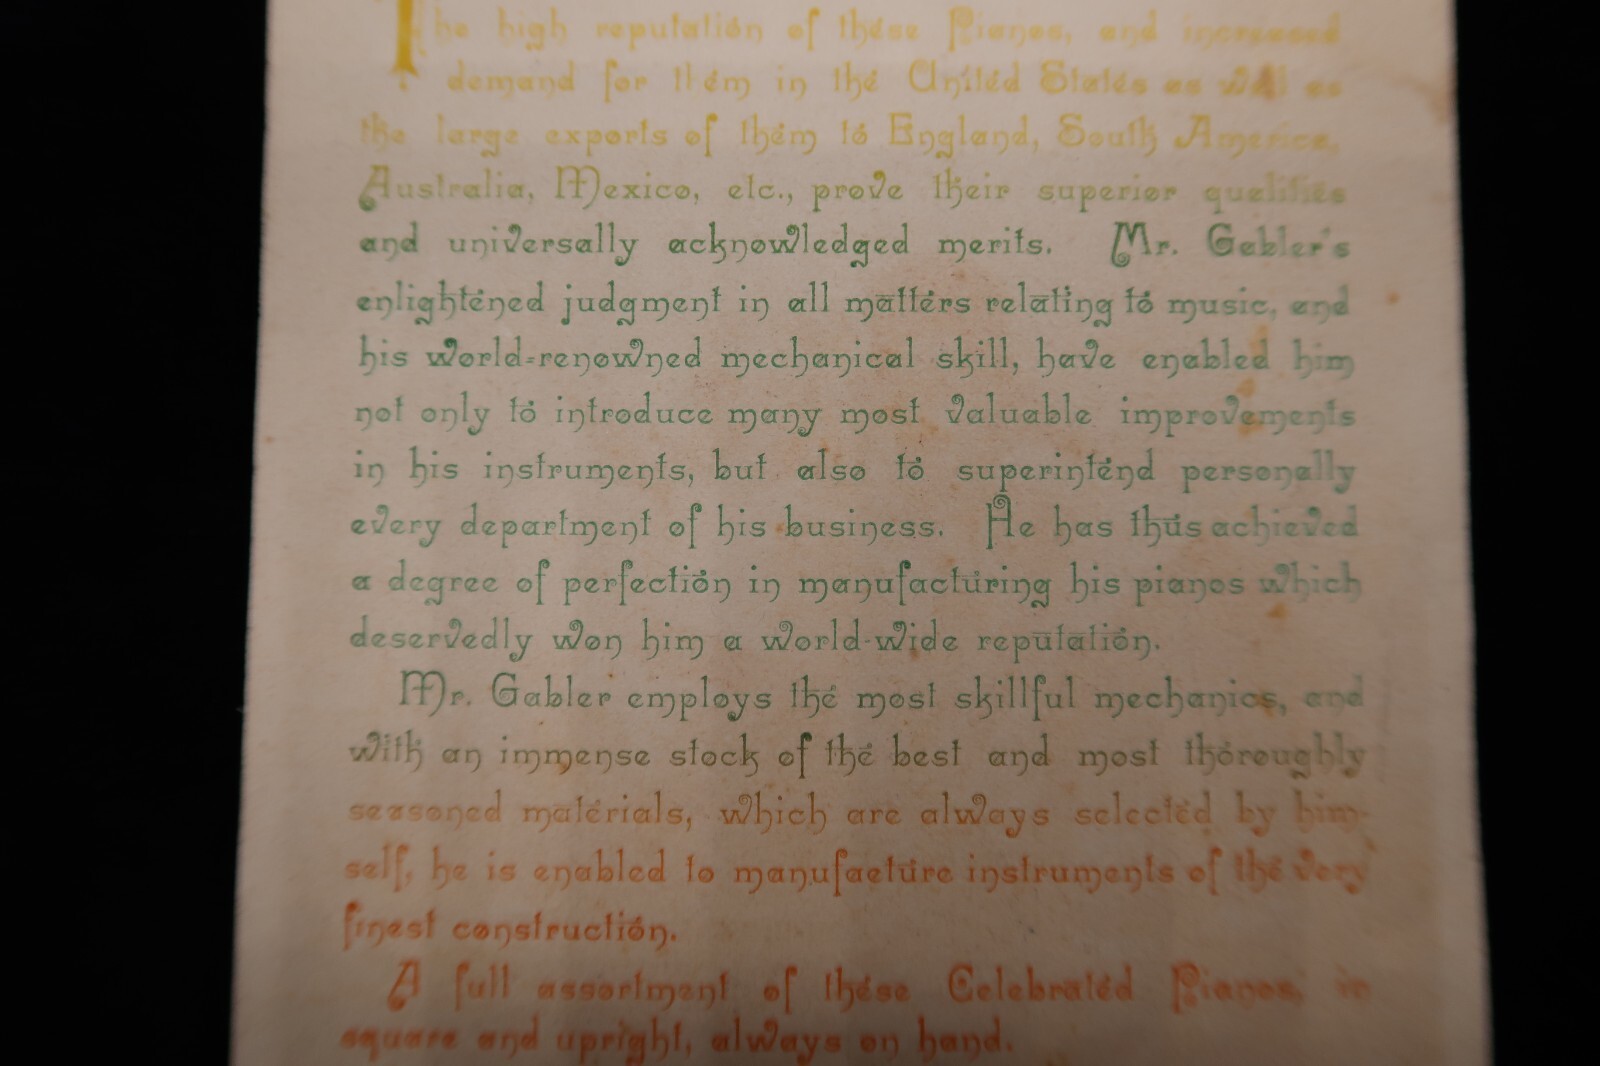 The high reputation of these Pianos, and increased
demand for them in the United States as well as
the large exports of them to England, South America,
Australia, Mexico, etc., prove their superior qualities
and universally acknowledged merits. Mr. Gabler's
enlightened judgment in all matters relating to music, and
his world-renowned mechanical skill, have enabled him
not only to introduce many most valuable improvements
in his instruments, but also to superintend personally
every department of his business. He has thus achieved
a degree of perfection in manufacturing his pianos which
deservedly won him a world-wide reputation.
Mr. Gabler employs the most skillful mechanics, and
with an immense stock of the best and most thoroughly
seasoned materials, which are always selected by him-
self, he is enabled to manufacture instruments of the very
finest construction.
A full assortment of these Celebrated Pianos, in
square and upright, always on hand.